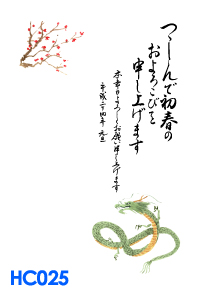 つゝしんで初春の
およろこびを
申し上げます
本年もよろしくお願い申し上げます
平成二十四年 元旦
HC025